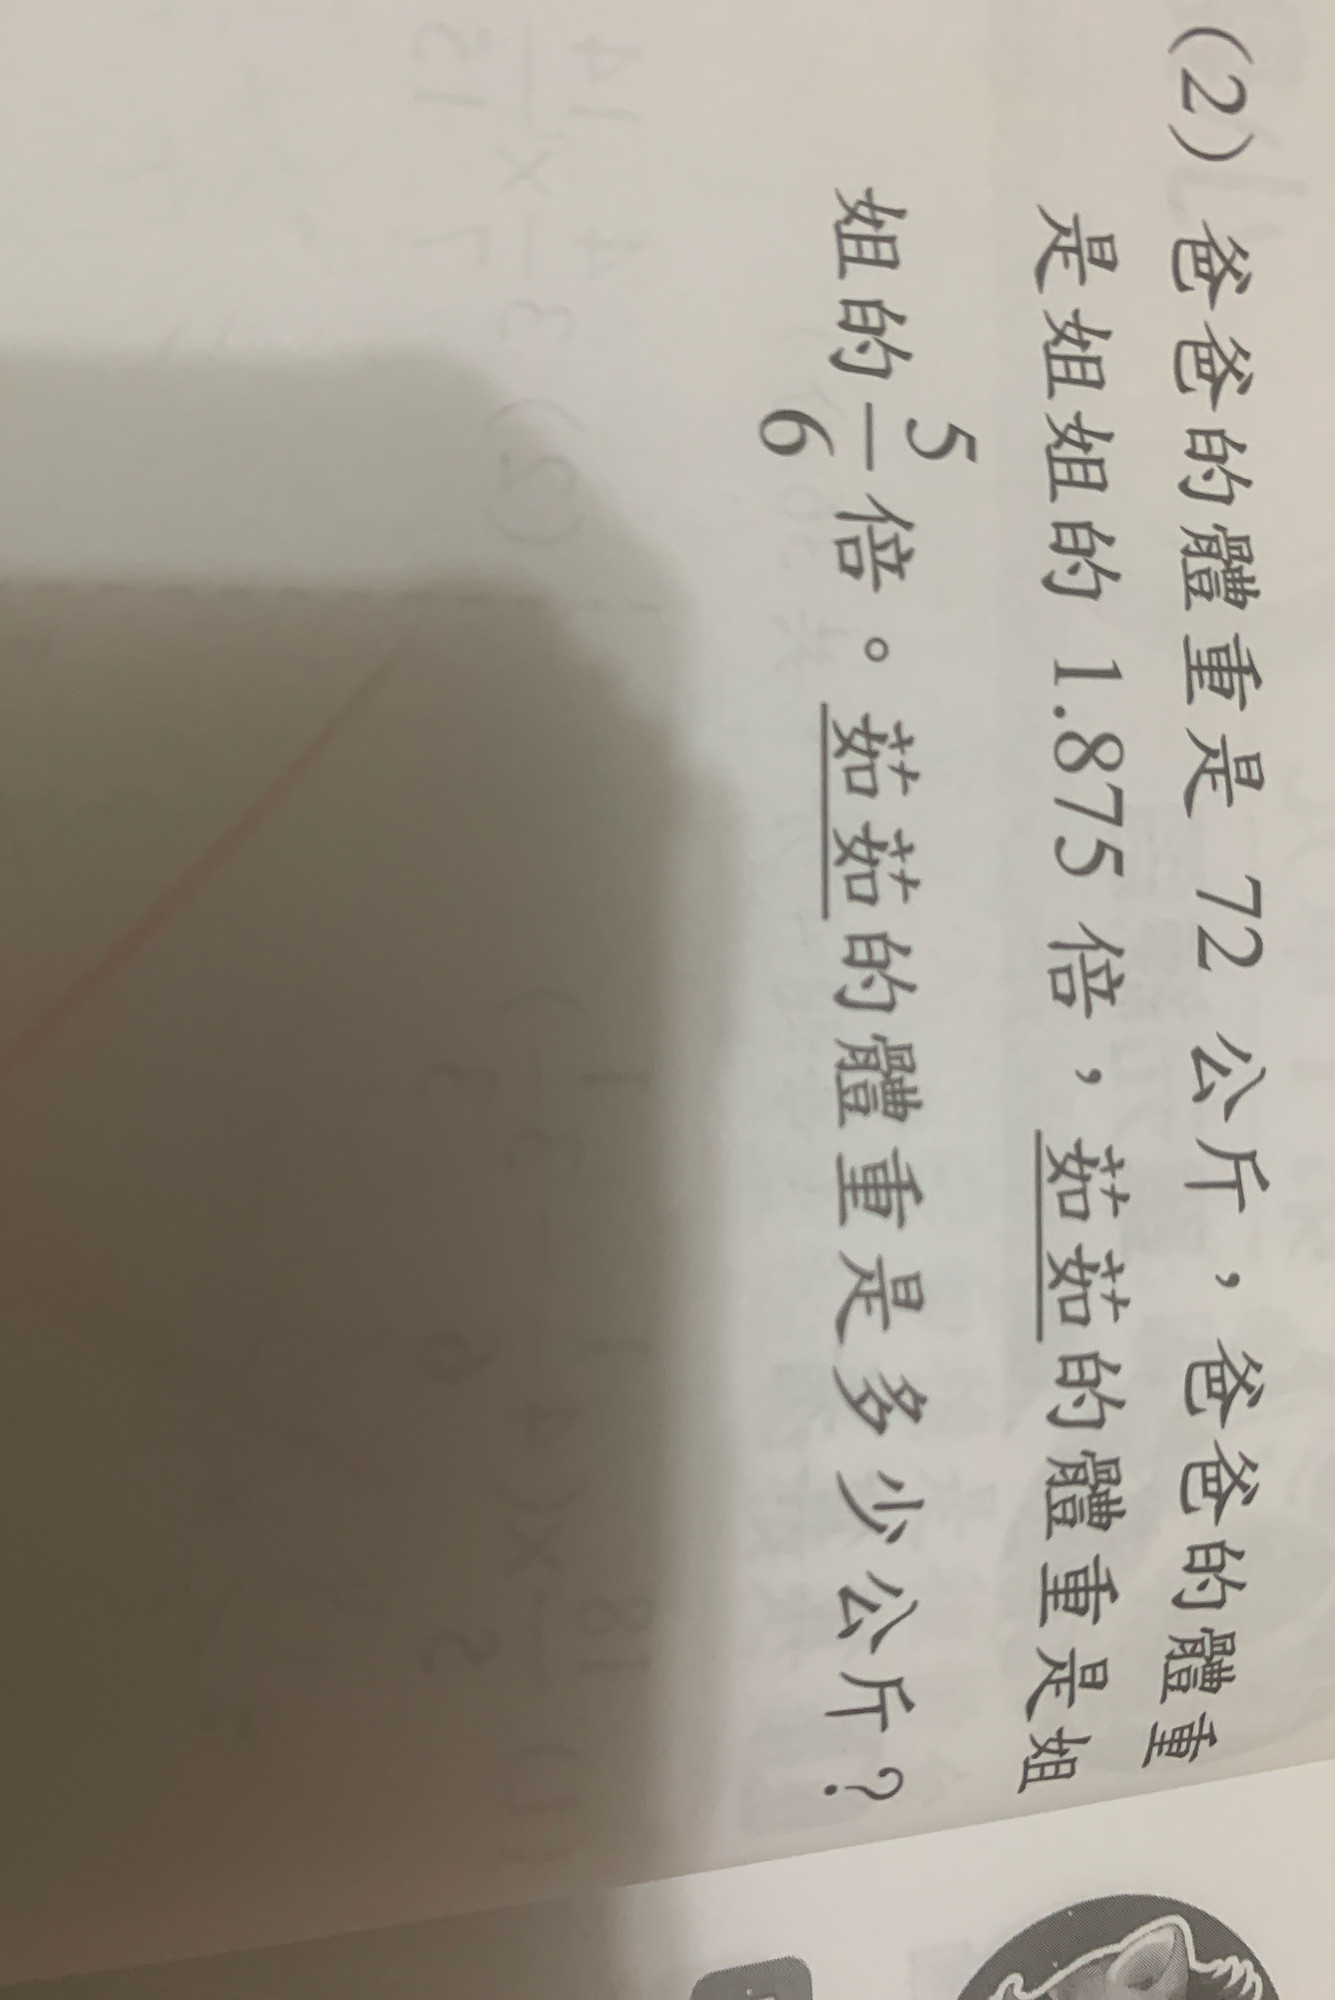 (2) 爸爸的體重是 72 公斤，爸爸的體重
是姐姐的 1.875 倍，茹茹的體重是姐
姐的 5/6 倍。茹茹的體重是多少公斤？